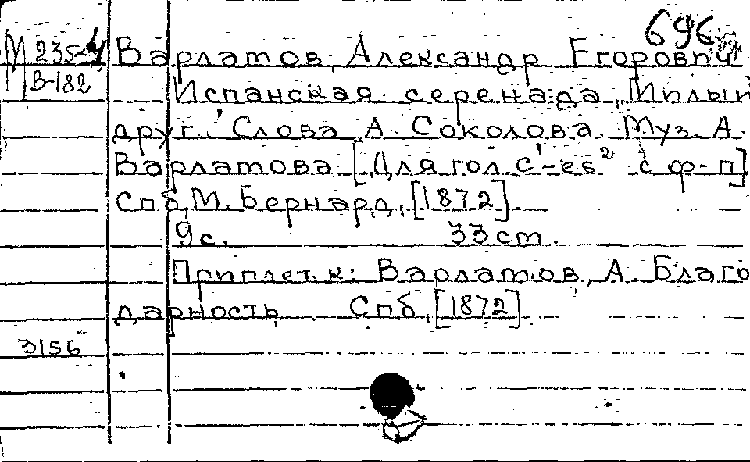 696
М 235-4 Варламов, Александр Егорович
В-182 Испанская серенада "Милый
друг." Слова А. Соколова. Муз. А.
Варламова. [Для гол. c'-es² с ф-п]
Спб, М. Бернард, [1872].
9 с. 33 cm.
Приплет. к: Варламов, А. Благо
дарность Спб, [1872]
3156